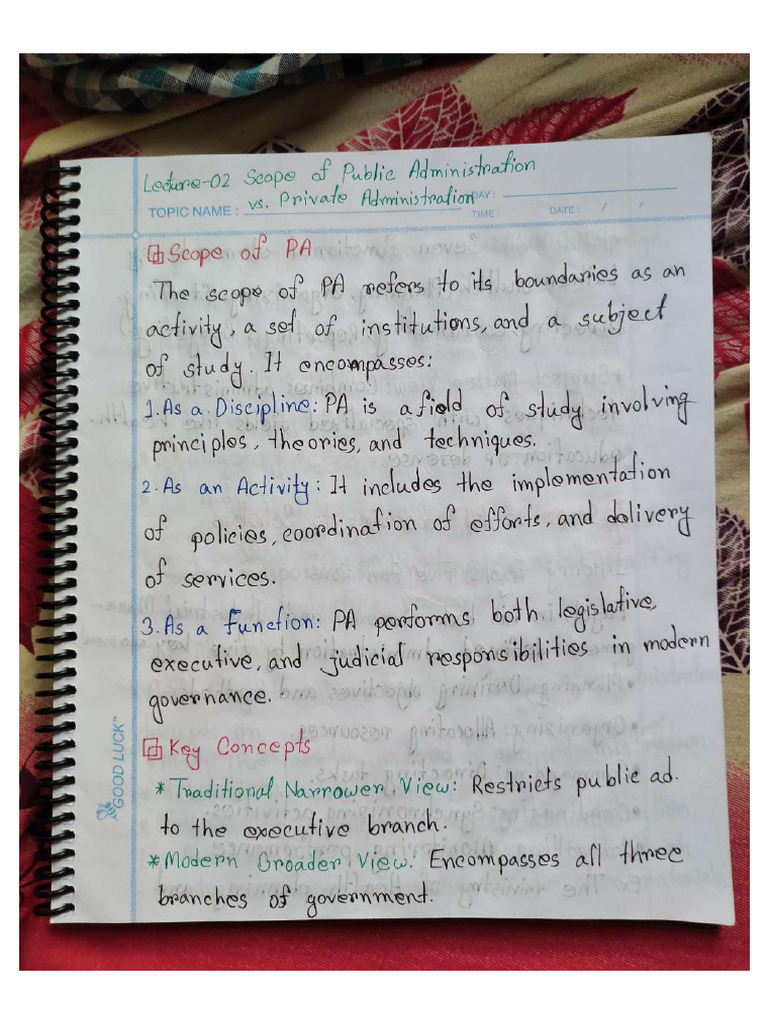 Lecture-02 Scope of Public Administration
vs. Private Administration
TOPIC NAME :
DAY :
TIME :
DATE : / /
Scope of PA
The scope of PA refers to its boundaries as an
activity, a set of institutions, and a subject
of study. It encompasses:
1. As a Discipline: PA is a field of study involving
principles, theories, and techniques.
2. As an Activity: It includes the implementation
of policies, coordination of efforts, and delivery
of services.
3. As a Function: PA performs both legislative,
executive, and judicial responsibilities in modern
governance.
Key Concepts
* Traditional Narrower View: Restricts public ad.
to the executive branch.
* Modern Broader View: Encompasses all three
branches of government.
GOOD LUCK™